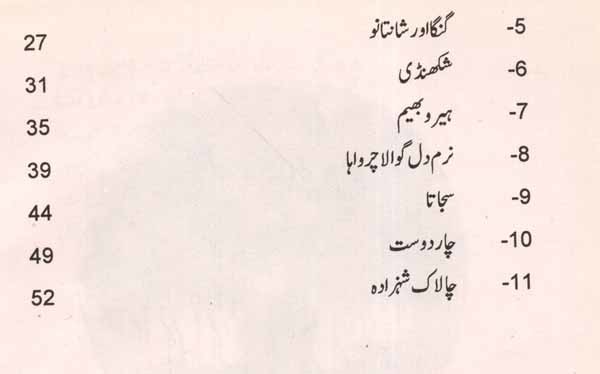 5- گنگا اور شانتانو 27
6- شکھنڈی 31
7- ہیرو بھیم 35
8- نرم دل گوالا چرواہا 39
9- سجاتا 44
10- چار دوست 49
11- چالاک شہزادہ 52